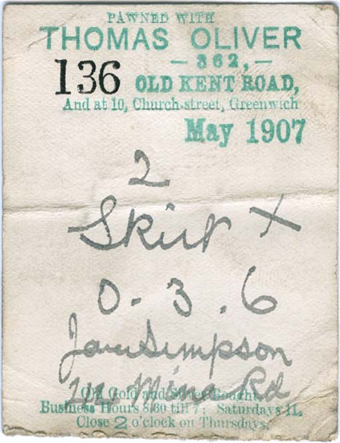 PAWNED WITH
THOMAS OLIVER
136 — 362, —
OLD KENT ROAD,
And at 10, Church-street, Greenwich
May 1907
2
Skirt X
0 . 3 . 6
Jane Simpson
Mina Rd
Old Gold and Silver Bought.
Business Hours 8.30 till 7; Saturdays 11.
Close 2 o'clock on Thursdays.